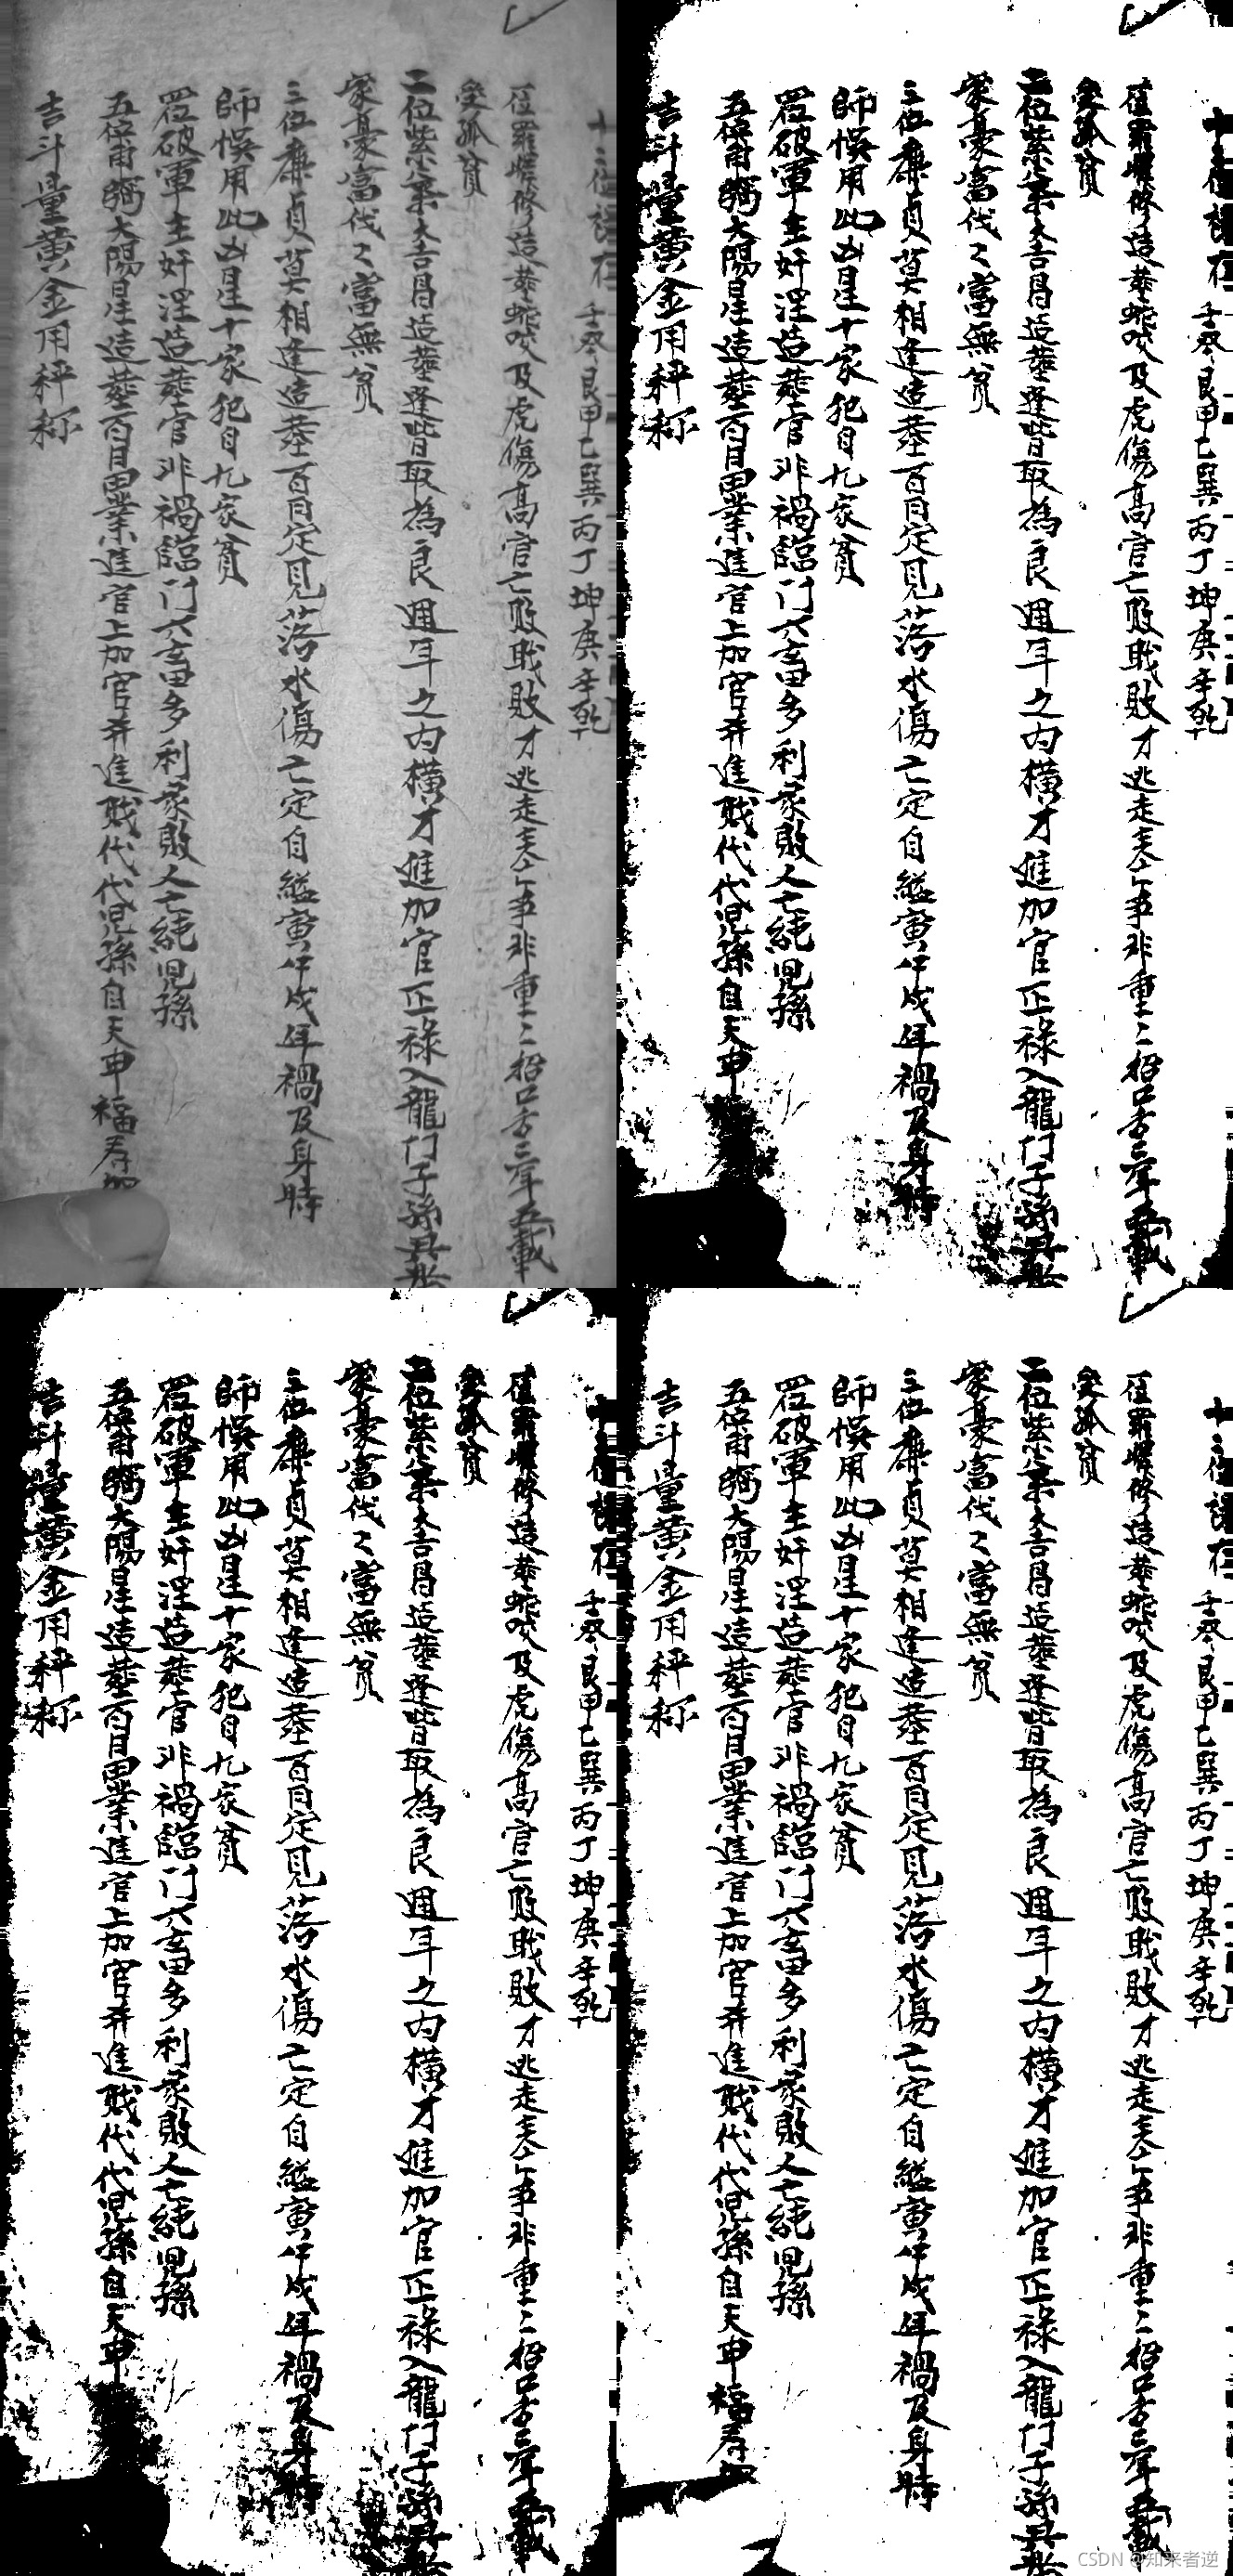 十二位 在 壬癸艮甲乙巽丙丁坤庚辛乾
位羅 修造葬蛇咬及虎傷高官亡敗戰敗才逃走 事非重〻招口舌三年五載
受孤貧
二位紫氣大吉昌造葬逢皆取為良週年之内橫才進加官正祿入龍门子孫
家豪富代〻富無貧
三位廉貞莫相逢造葬百日定見落水傷亡定自縊寅午戌年禍及身時
師悞用此凶星十家犯自九家貧
四位破軍主奸淫造葬官非禍臨门六畜多利家敗人亡絕児孫
五位甫弼太陽星造葬百日田業進官上加官并進財代代児孫自天申福寿
吉斗量黄金用秤称
CSDN @知来者逆